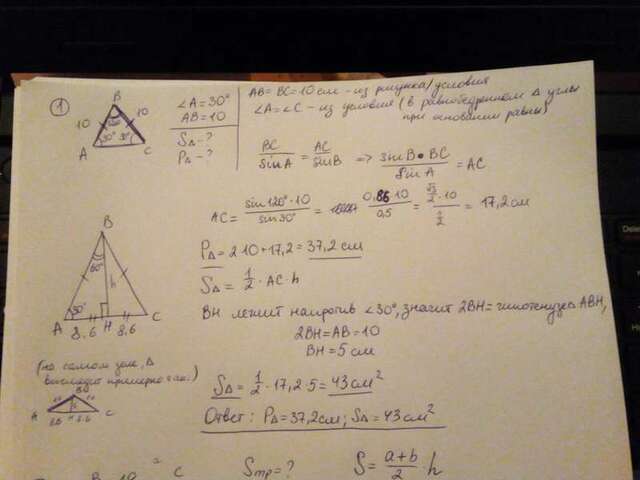 1
B
10
10
30°
30°
A
C
∠A = 30°
AB = 10
S△ - ?
P△ - ?
AB = BC = 10 см - из рисунка/условия
∠A = ∠C - из условия (в равнобедренном △ углы
при основании равны)
BC/sin A = AC/sin B => sin B • BC/sin A = AC
AC = sin 120° · 10/sin 30° = 0,86·10/0,5 = √3/2 · 10/1/2 = 17,2 см
P△ = 2·10+17,2 = 37,2 см
S△ = 1/2 · AC · h
B
60°
h
30°
A
H
C
8,6
8,6
BH лежит напротив ∠30°, значит 2BH = гипотенузе △ABH,
2BH = AB = 10
BH = 5 см
(на самом деле, △
выглядит примерно так.)
B
A
H
C
8,6
8,6
S△ = 1/2 · 17,2 · 5 = 43 см²
Ответ: P△ = 37,2 см; S△ = 43 см²
B
C
Sтр = ?
S = a+b/2 · h